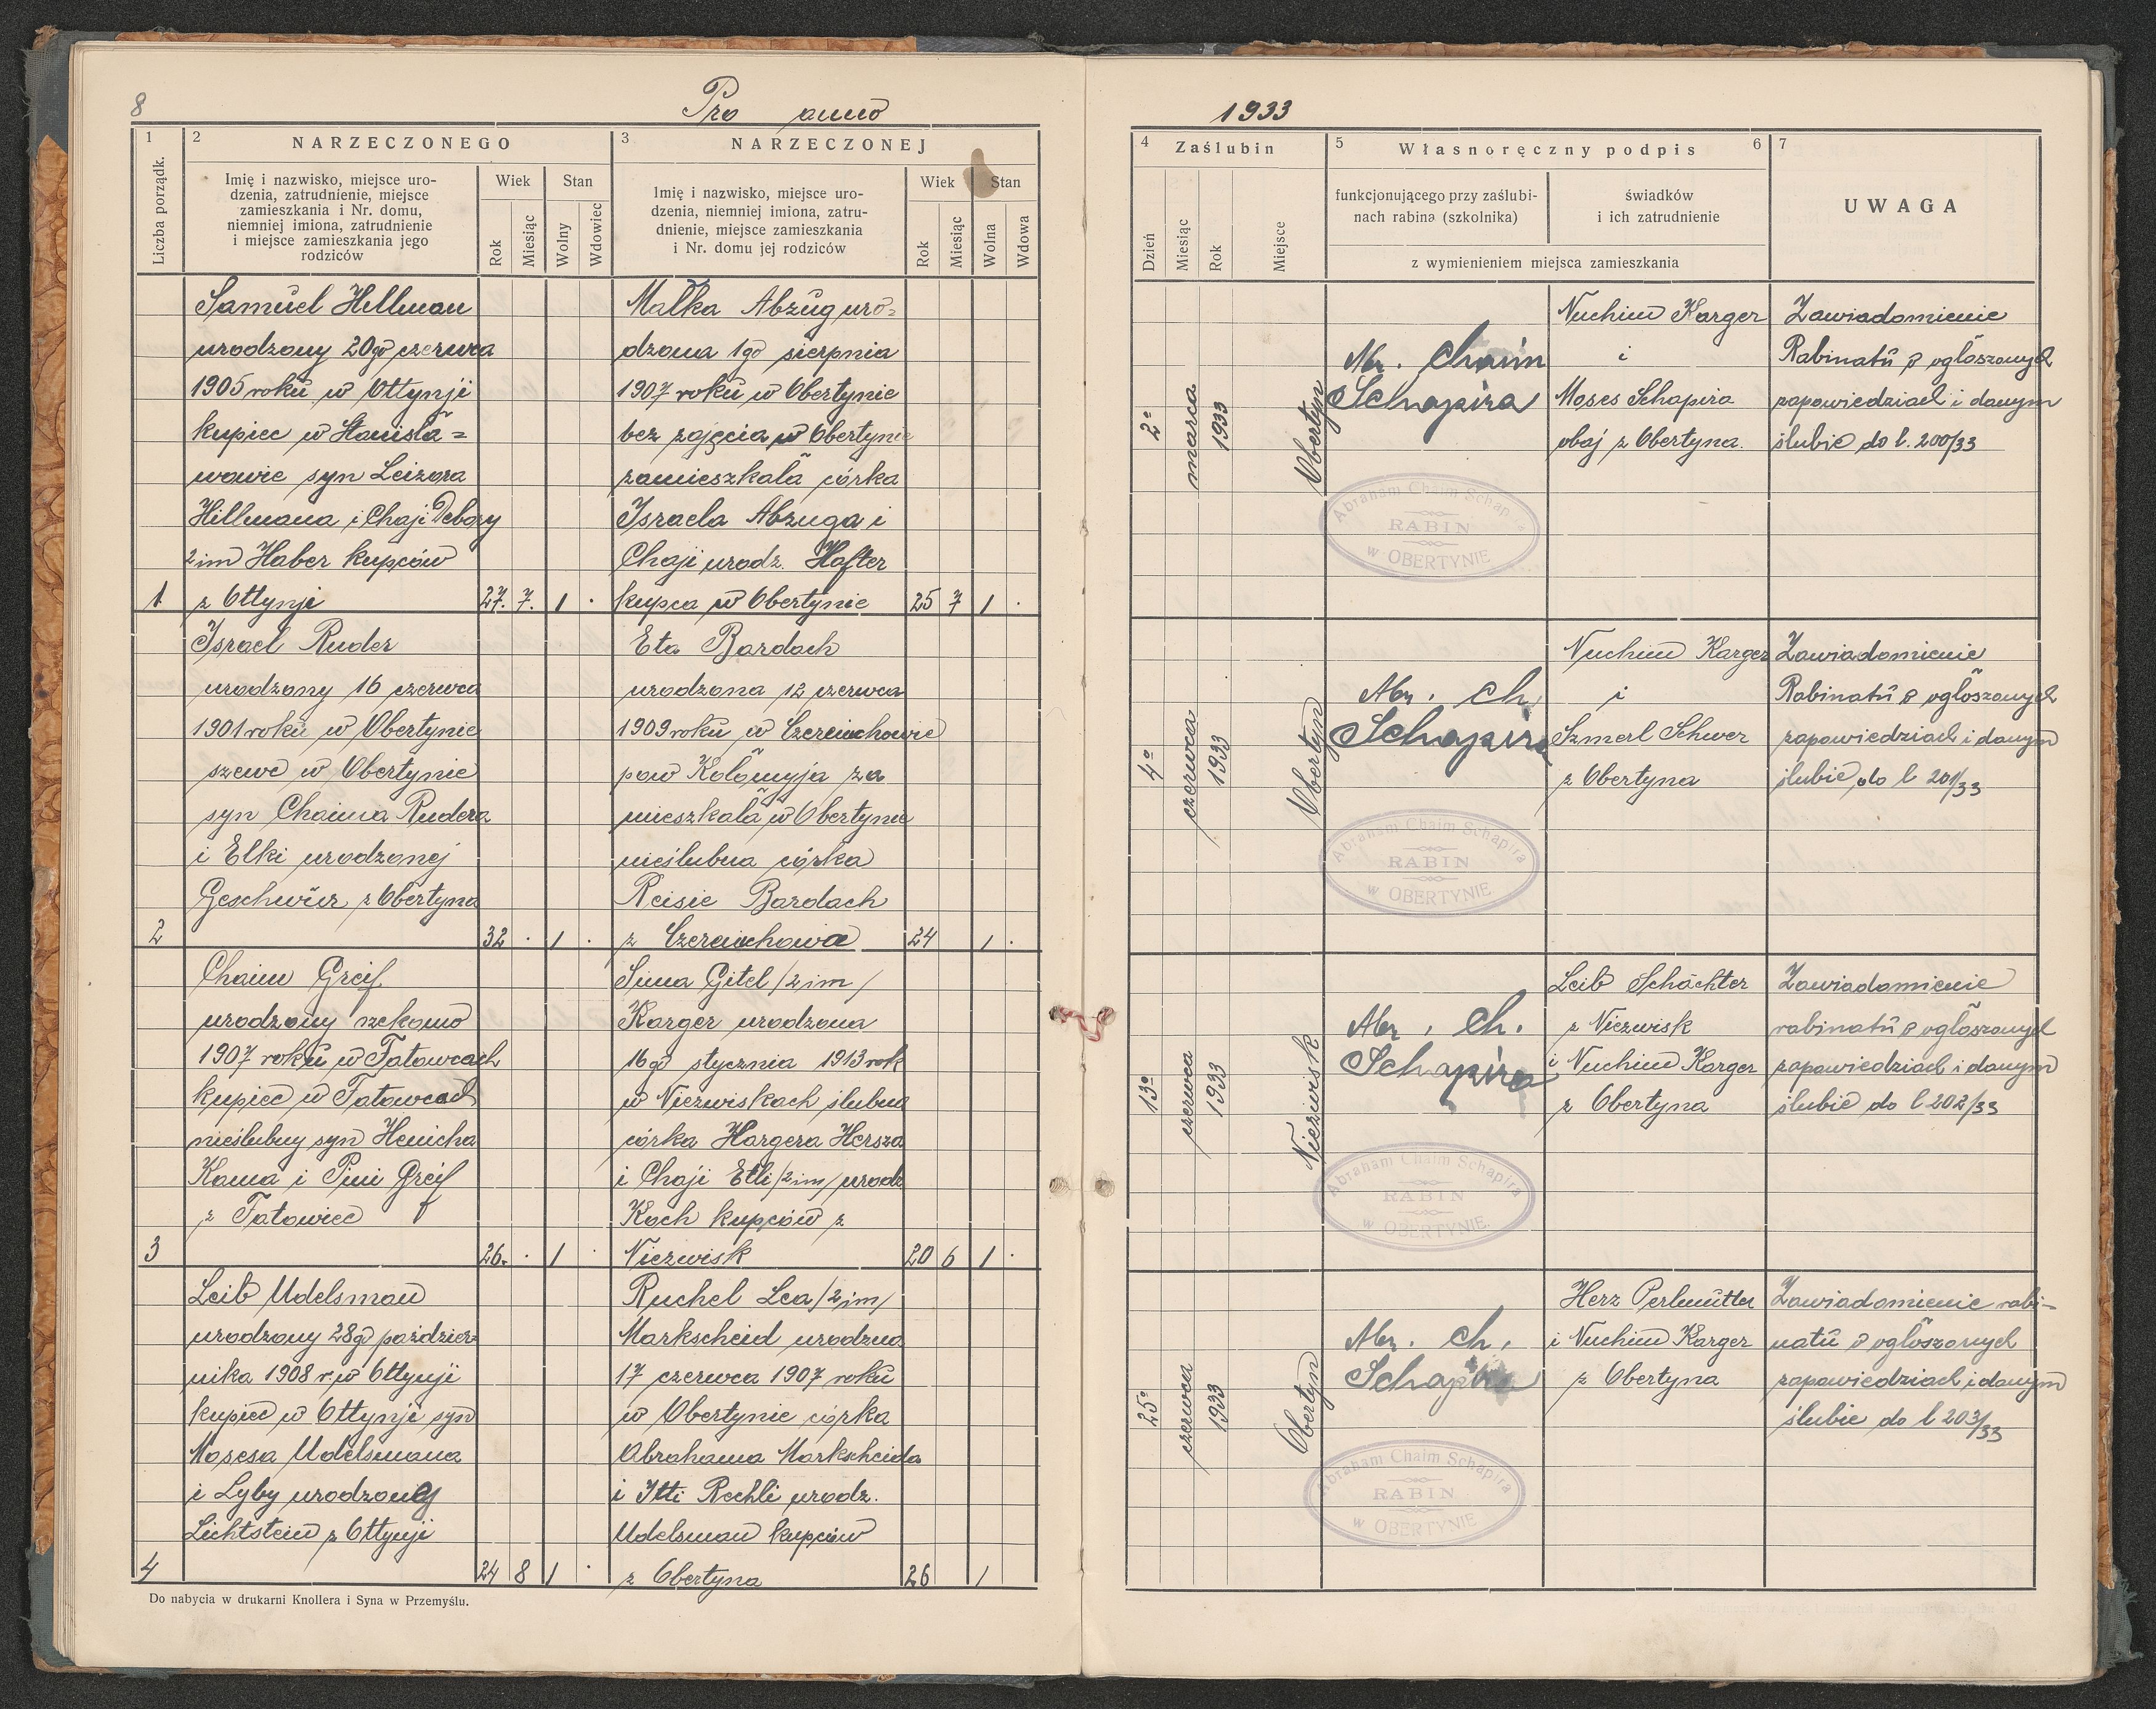 8
Pro anno
1933
1
2
NARZECZONEGO
3
NARZECZONEJ
Liczba porządk.
Imię i nazwisko, miejsce uro-
dzenia, zatrudnienie, miejsce
zamieszkania i Nr. domu,
niemniej imiona, zatrudnienie
i miejsce zamieszkania jego
rodziców
Wiek
Stan
Rok
Miesiąc
Wolny
Wdowiec
Imię i nazwisko, miejsce uro-
dzenia, niemniej imiona, zatru-
dnienie, miejsce zamieszkania
i Nr. domu jej rodziców
Wiek
Stan
Rok
Miesiąc
Wolna
Wdowa
4
Zaślubin
5
Własnoręczny podpis
6
7
Dzień
Miesiąc
Rok
Miejsce
funkcjonującego przy zaślubi-
nach rabina (szkolnika)
świadków
i ich zatrudnienie
z wymienieniem miejsca zamieszkania
UWAGA
Samuel Hellman
urodzony 20go czerwca
1905 roku w Ottynji
kupiec w Stanisła=
wowie syn Leizora
Hillmana i Chaji Debory
2 im Haber kupców
1 z Ottynji 27. 7. 1 .
Malka Abzug uro=
dzona 1go sierpnia
1907 roku w Obertynie
bez zajęcia w Obertynie
zamieszkała córka
Israela Abzuga i
Chaji urodz. Hafter
kupca w Obertynie 25 7 1 .
2o
marca
1933
Obertyn
Abr. Chaim
Schapira
Abraham Chaim Schapira
RABIN
w OBERTYNIE
Nuchim Karger
i
Moses Schapira
obaj z Obertyna.
Zawiadomienie
Rabinatu o ogłoszonych
zapowiedziach i danym
ślubie do l. 200/33
Israel Ruder
urodzony 16 czerwca
1901 roku w Obertynie
szewc w Obertynie
syn Chaima Rudera
i Elki urodzonej
Geschwür z Obertyna
2 32 . 1 .
Eta Bardach
urodzona 12 czerwca
1909 roku w Czerniachowie
pow Kołomyja za
mieszkała w Obertynie
nieślubna córka
Reisie Bardach
z Czerniachowa 24 1 .
4o
czerwca
1933
Obertyn
Abr. Ch.
Schapira
Abraham Chaim Schapira
RABIN
w OBERTYNIE
Nuchim Karger
i
Szmerl Schwer
z Obertyna
Zawiadomienie
Rabinatu o ogłoszonych
zapowiedziach i danym
ślubie do l 201/33
Chaim Greif
urodzony rzekomo
1907 roku w Fatowcach
kupiec w Fatowcach
nieślubny syn Henicha
Kama i Pini Greif
z Fatowiec
3 26. . 1 .
Sima Gitel /2 im/
Karger urodzona
16go stycznia 1913 rok
w Niezwiskach ślubna
córka Hargera Hersza
i Chaji Etli /2 im/ urodz
Koch kupców z
Niezwisk 20 6 1 .
13o
czerwca
1933
Niezwisk
Abr. Ch.
Schapira
Abraham Chaim Schapira
RABIN
w OBERTYNIE.
Leib Schächter
z Niezwisk
i Nuchim Karger
z Obertyna
Zawiadomienie
rabinatu o ogłoszonych
zapowiedziach i danym
ślubie do l 202/33
Leib Udelsman
urodzony 28go paździer=
nika 1908 r. w Ottynji
kupiec w Ottynji syn
Mosesa Udelsmana
i Lyby urodzonej
Lichtstein z Ottynji
4 24 8 1 .
Ruchel Lea /2 im/
Markscheid urodzna
17 czerwca 1907 roku
w Obertynie córka
Abrahama Markscheida
i Itti Rechli urodz.
Udelsman kupców
z Obertyna 26 1
25o
czerwca
1933
Obertyn
Abr. Ch.
Schapira
Abraham Chaim Schapira
RABIN
w OBERTYNIE
Herz Perlmutter
i Nuchim Karger
z Obertyna
Zawiadomienie rabi-
natu o ogłoszonych
zapowiedziach i danym
ślubie do l 203/33
Do nabycia w drukarni Knollera i Syna w Przemyślu.